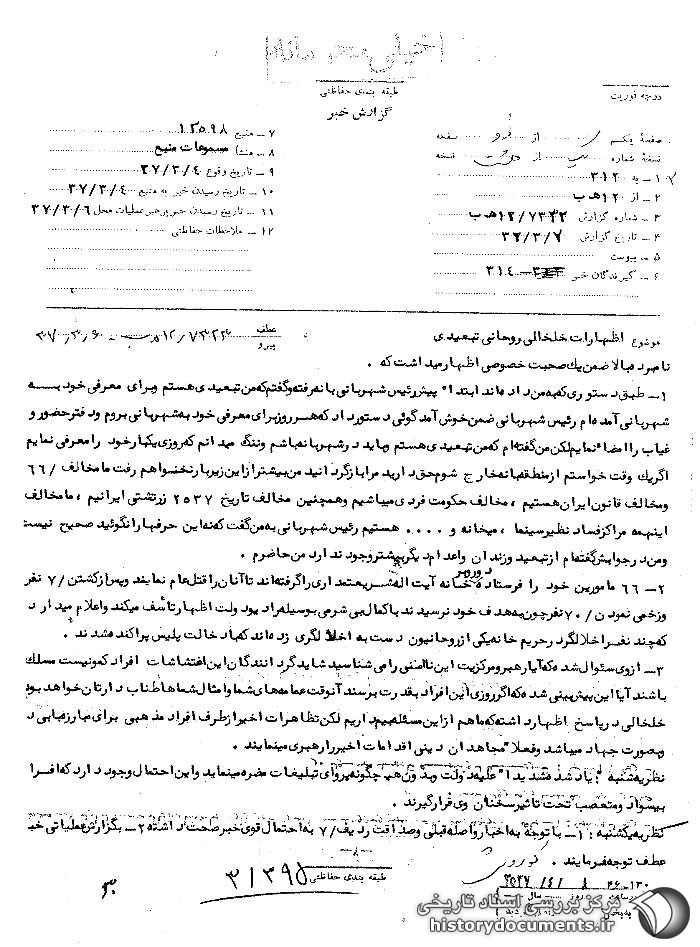 خیلی محرمانه
طبقه بندی حفاظتی
درجه فوریت
گزارش خبر
صفحهٔ یکم از دو صفحه
نسخهٔ شماره از هشت نسخه
۱ – به ۳۱۲
۲ – از ۱۲۰ ه‍ ب
۳ – شماره گزارش ۱۲/۷۳۲۲ ه‍ ب
۴ – تاریخ گزارش ۳۷/۳/۷
۵ – پیوست
۶ – گیرندگان خبر ۳۱۴
۷ – منبع ۱۲۵۹۸
۸ – منشأ مسموعات منبع
۹ – تاریخ وقوع ۳۷/۳/۴
۱۰ – تاریخ رسیدن خبر به منبع ۳۷/۳/۴
۱۱ – تاریخ رسیدن خبر برهبر عملیات محل ۳۷/۳/۶
۱۲ – ملاحظات حفاظتی
موضوع اظهارات خلخالی روحانی تبعیدی
عطف پیرو
نامبرده بالا ضمن یک صحبت خصوصی اظهار میداشت که .
۱- طبق دستوری که به من داده اند ابتدا " پیش رئیس شهربانی بانه رفته و گفتم که من تبعیدی هستم و برای معرفی خود بسه
شهربانی آمده ام رئیس شهربانی ضمن خوش آمد گوئی دستور داد که هر روز برای معرفی خود به شهربانی بروم و دفتر حضور و
غیاب را امضاء نمایم لکن من گفته ام که من تبعیدی هستم و باید در شهر بانه باشم و ننگ میدانم که روزی یکبار خود را معرفی نمایم
اگر یک وقت خواستم از منطقه بانه خارج شوم حق دارید مرا بازگردانید من بیشتر از این زیر بار نخواهم رفت ما مخالف /۶۶
و مخالف قانون ایران هستیم ، مخالف حکومت فردی میباشیم و همچنین مخالف تاریخ ۲۵۳۷ زرتشتی ایرانیم ، ما مخالف
اینهمه مراکز فساد نظیر سینما ، میخانه و . . . . هستیم رئیس شهربانی به من گفت که نه این حرفها را نگوئید صحیح نیست
و من در جوابش گفته ام از تبعید و زندان و اعدام دیگر بیشتر وجود ندارد من حاضرم .
۲- ۶۶ مامورین خود را فرستاده دور و بر خانه آیت اله شریعتمداری را گرفته اند تا آنان را قتل عام نمایند و پس از کشتن /۷ نفر
و زخمی نمودن /۷۰ نفر چون به هدف خود نرسیدند با کمال بی شرمی بوسیله رادیو دولت اظهار تأسف میکند و اعلام میدارد
که چند نفر اخلالگر در حریم خانه یکی از روحانیون دست به اخلالگری زده اند که با دخالت پلیس پراکنده شدند .
۳- از وی سئوال شده که آیا رهبر و مرکزیت این ناامنی را می شناسید شاید گردانندگان این اغتشاشات افراد کمونیست مسلک
باشند آیا این پیش بینی شده که اگر روزی این افراد بقدرت برسند آنوقت عمامه های شما و امثال شماها طناب دارتان خواهد بود
خلخالی در پاسخ اظهار داشته که ما هم از این مسئله بیم داریم لکن تظاهرات اخیر از طرف افراد مذهبی برای مبارزه بابی د
وبصورت جهاد میباشد و فعلا " مجاهدان دینی اقدامات اخیر را رهبری مینمایند .
نظریه شنبه : یاد شده شدیدا " علیه دولت و بدون هیچگونه پروائی تبلیغات مضره مینماید و این احتمال وجود دارد که افرا
بیسواد و متعصب تحت تأثیر سخنان وی قرار گیرند .
نظریه یکشنبه : ۱- با توجه به اخبار واصله قبلی و صداقت ردیف /۷ به احتمال قوی خبر صحت داشته ۲- بگزارش عملیاتی خبـ
عطف توجه فرمایند . کوروش
طبقه بندی حفاظتی
۳/۳۹۵
۱۳۰-۴۶
مرکز بررسی اسناد تاریخی
historydocuments.ir